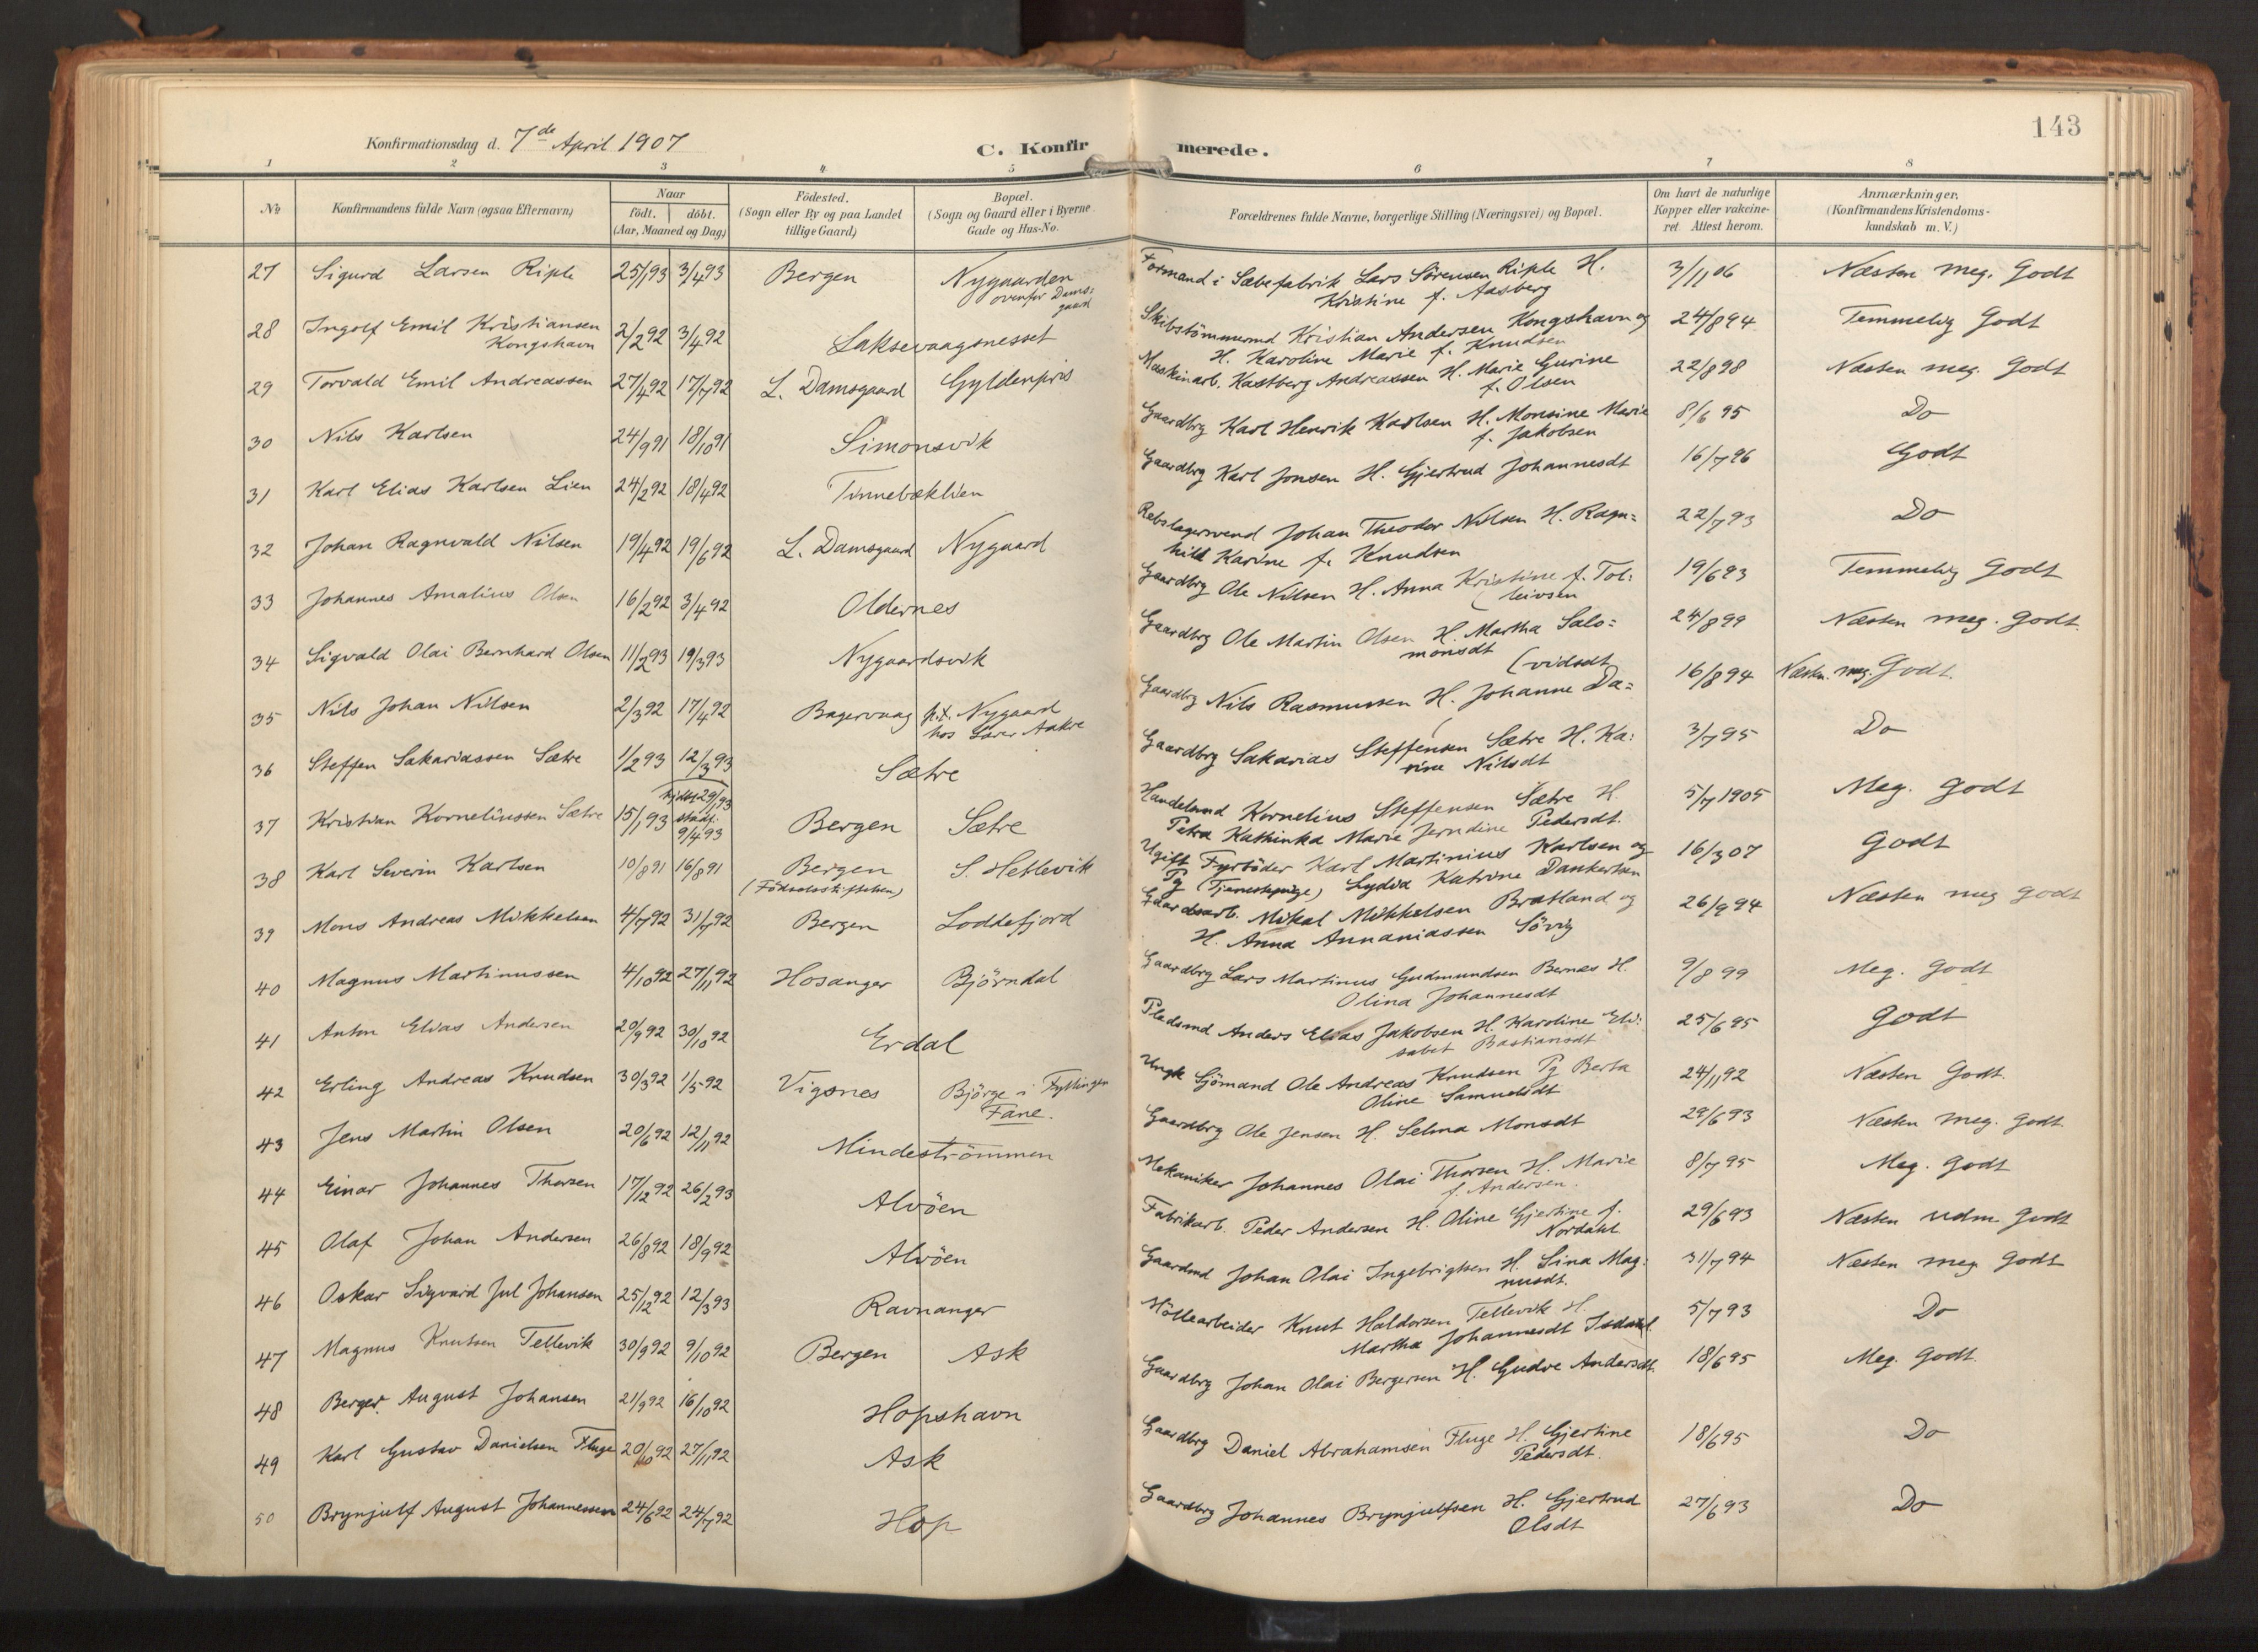 143
Konfirmationsdag d. 7de April 1907
C. Konfirmerede.
1 2 3 4 5 6 7 8
No
Konfirmandens fulde Navn (ogsaa Efternavn)
Naar
født. | døbt.
(Aar, Maaned og Dag)
Födested.
(Sogn eller By og paa Landet
tillige Gaard)
Bopæl.
(Sogn og Gaard eller i Byerne
Gade og Hus-No.
Forældrenes fulde Navne, borgerlige Stilling (Næringsvei) og Bopæl.
Om havt de naturlige
Kopper eller vakcine-
ret. Attest herom.
Anmærkninger.
(Konfirmandens Kristendoms-
kundskab m. V.)
27 Sigurd Larsen Riple 25/1 93 3/4 93 Bergen Nygaarden
ovenfor Dams=
gaard
Formand i Sæbefabrik Lars Sørensen Riple H.
Kristine f. Aasberg
3/11 06 Næsten meg. Godt
28 Ingolf Emil Kristiansen
Kongshavn
2/2 92 3/4 92 Laksevaagsnesset
Skibstömmermd Kristian Andersen Kongshavn og
H. Karoline Marie f. Knudsen
24/8 94 Temmelig Godt
29 Torvald Emil Andreassen 27/4 92 17/7 92 L. Damsgaard Gyldenpris
Maskinarb. Kastberg Andreassen H. Marie Gurine
f. Olsen
22/8 98 Næsten meg. Godt
30 Nils Karlsen 24/9 91 18/10 91 Simonsvik
Gaardbrg Karl Henrik Karlsen H. Monsine Marie
f. Jakobsen
8/6 95 Do
31 Karl Elias Karlsen Lien 24/2 92 18/4 92 Tinnebæklien
Gaardbrg Karl Jonsen H. Gjertrud Johannesdt
16/7 96 Godt
32 Johan Ragnvald Nilsen 19/4 92 19/6 92 L. Damsgaard Nygaard
Rebslagersvend Johan Theodor Nilsen H. Ragn=
hild Karine f. Knudsen
22/7 93 Do
33 Johannes Amalius Olsen 16/2 92 3/4 92 Oldernes
Gaardbrg Ole Nilsen H. Anna Kristine f. Tol:
leivsen
19/6 93 Temmelig Godt
34 Sigvald Olai Bernhard Olsen 11/2 93 19/3 93 Nygaardsvik
Gaardbrg Ole Martin Olsen H. Martha Salo=
monsdt
24/8 99 Næsten meg. Godt.
35 Nils Johan Nilsen 2/3 92 17/4 92 Bagervaag p.t. Nygaard
hos Lærer Aakre
(vidsdt
Gaardbrg Nils Rasmussen H. Johanne Da=
16/8 94 Næsten. meg. Godt.
36 Steffen Sakariassen Sætre 1/2 93 12/3 93 Sætre
Gaardbrg Sakarias Steffensen Sætre H. Ka:
rine Nilsdt
3/7 95 Do
37 Kristian Korneliussen Sætre 15/1 93 hjdbt 29/1 93
stadf.
9/4 93
Bergen Sætre
Handelsmd Kornelius Steffensen Sætre H.
Petra Kathinka Marie Jerndine Pedersdt.
5/7 1905 Meg. Godt
38 Karl Severin Karlsen 10/8 91 16/8 91 Bergen
(Födselsstiftelsen)
S. Hetlevik
Ugift Fyrböder Karl Martinius Karlsen og
Pg (Tjenestepige) Lydia Katrine Dankertsen
16/3 07 Godt
39 Mons Andreas Mikkelsen 4/7 92 31/7 92 Bergen Loddefjord
Gaardsarb. Mikal Mikkelsen Bratland og
H. Anna Annaniassen Sövig
26/9 94 Næsten meg Godt
40 Magnus Martinussen 4/10 92 27/11 92 Hosanger Björndal
Gaardbrg Lars Martinus Gudmundsen Bernæs H.
Olina Johannesdt
9/8 99 Meg. Godt
41 Anton Elias Andersen 20/9 92 30/10 92 Erdal
Pladsmd Anders Elias Jakobsen H. Karoline Eli:
sabet Bastiansdt
25/6 95 Godt
42 Erling Andreas Knudsen 30/3 92 1/5 92 Vigsnes Björge i Fyllingen
Fane.
Ungk Sjömand Ole Andreas Knudsen Pg Berta
Oline Samuelsdt
24/11 92 Næsten Godt
43 Jens Martin Olsen 20/6 92 12/11 92 Mindeströmmen
Gaardbrg Ole Jensen H. Selma Monsdt
29/6 93 Næsten meg. Godt
44 Einar Johannes Thorsen 17/12 92 26/2 93 Alvöen
Mekaniker Johannes Olai Thorsen H. Marie
f. Andersen.
8/7 95 Meg. Godt
45 Olaf Johan Andersen 26/8 92 18/9 92 Alvöen
Fabrikarb. Peder Andersen H. Oline Gjertine f.
Nordahl
29/6 93 Næsten udm. Godt
46 Oskar Sigvard Jul Johansen 25/12 92 12/3 93 Ravnanger
Gaardmd Johan Olai Ingebrigtsen H. Sina Mag:
nusdt.
31/7 94 Næsten meg Godt
47 Magnus Knutsen Tellevik 30/9 92 9/10 92 Bergen Ask
Möllearbeider Knut Haldorsen Tellevik H.
Martha Johannesdt Isdahl.
5/7 93 Do
48 Berger August Johansen 21/9 92 16/10 92 Hopshavn
Gaardbrg Johan Olai Bergersen H. Gudve Andersdt.
18/6 95 Meg. Godt.
49 Karl Gustav Danielsen Fluge 20/10 92 27/11 92 Ask
Gaardbrg Daniel Abrahamsen Fluge H. Gjertine
Pedersdt.
18/6 95 Do
50 Brynjulf August Johannessen 24/6 92 24/7 92 Hop
Gaardbrg Johannes Brynjulfsen H. Gjertrud
Olsdt
27/6 93 Do